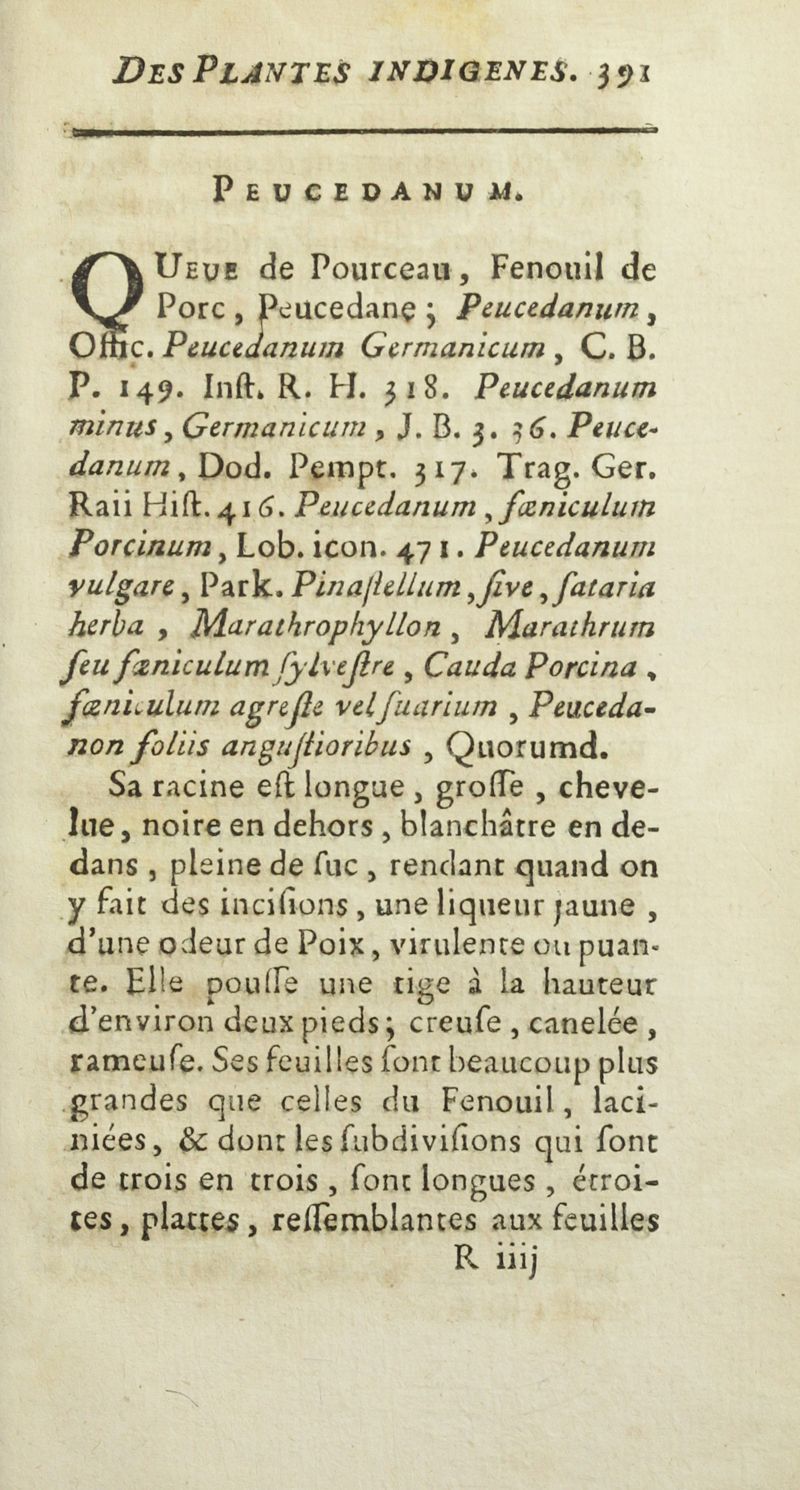 DES PLANTES INDIGENES. 391
PEUCEDANUM.
QUEUE de Pourceau, Fenouil de
Porc, Peucedane ; Peucedanum,
Offic. Peucedanum Germanicum, C. B.
P. 149. Inſt. R. H. 318. Peucedanum
minus, Germanicum, J. B. 3. 36. Peuce-
danum, Dod. Pempt. 317. Trag. Ger.
Raii Hiſt. 416. Peucedanum, fœniculum
Porcinum, Lob. icon. 471. Peucedanum
vulgare, Park. Pinaſtellum, ſive, fataria
herba, Marathrophyllon, Marathrum
ſeu fœniculum ſylveſtre, Cauda Porcina,
fœniculum agreſte vel ſuarium, Peuceda-
non foliis anguſtioribus, Quorumd.
Sa racine eſt longue, groſſe, cheve-
lue, noire en dehors, blanchâtre en de-
dans, pleine de ſuc, rendant quand on
y fait des inciſions, une liqueur jaune,
d'une odeur de Poix, virulente ou puan-
te. Elle pouſſe une tige à la hauteur
d'environ deux pieds; creuſe, canelée,
rameuſe. Ses feuilles ſont beaucoup plus
grandes que celles du Fenouil, laci-
niées, & dont les ſubdiviſions qui ſont
de trois en trois, ſont longues, étroi-
tes, plattes, reſſemblantes aux feuilles
R iiij